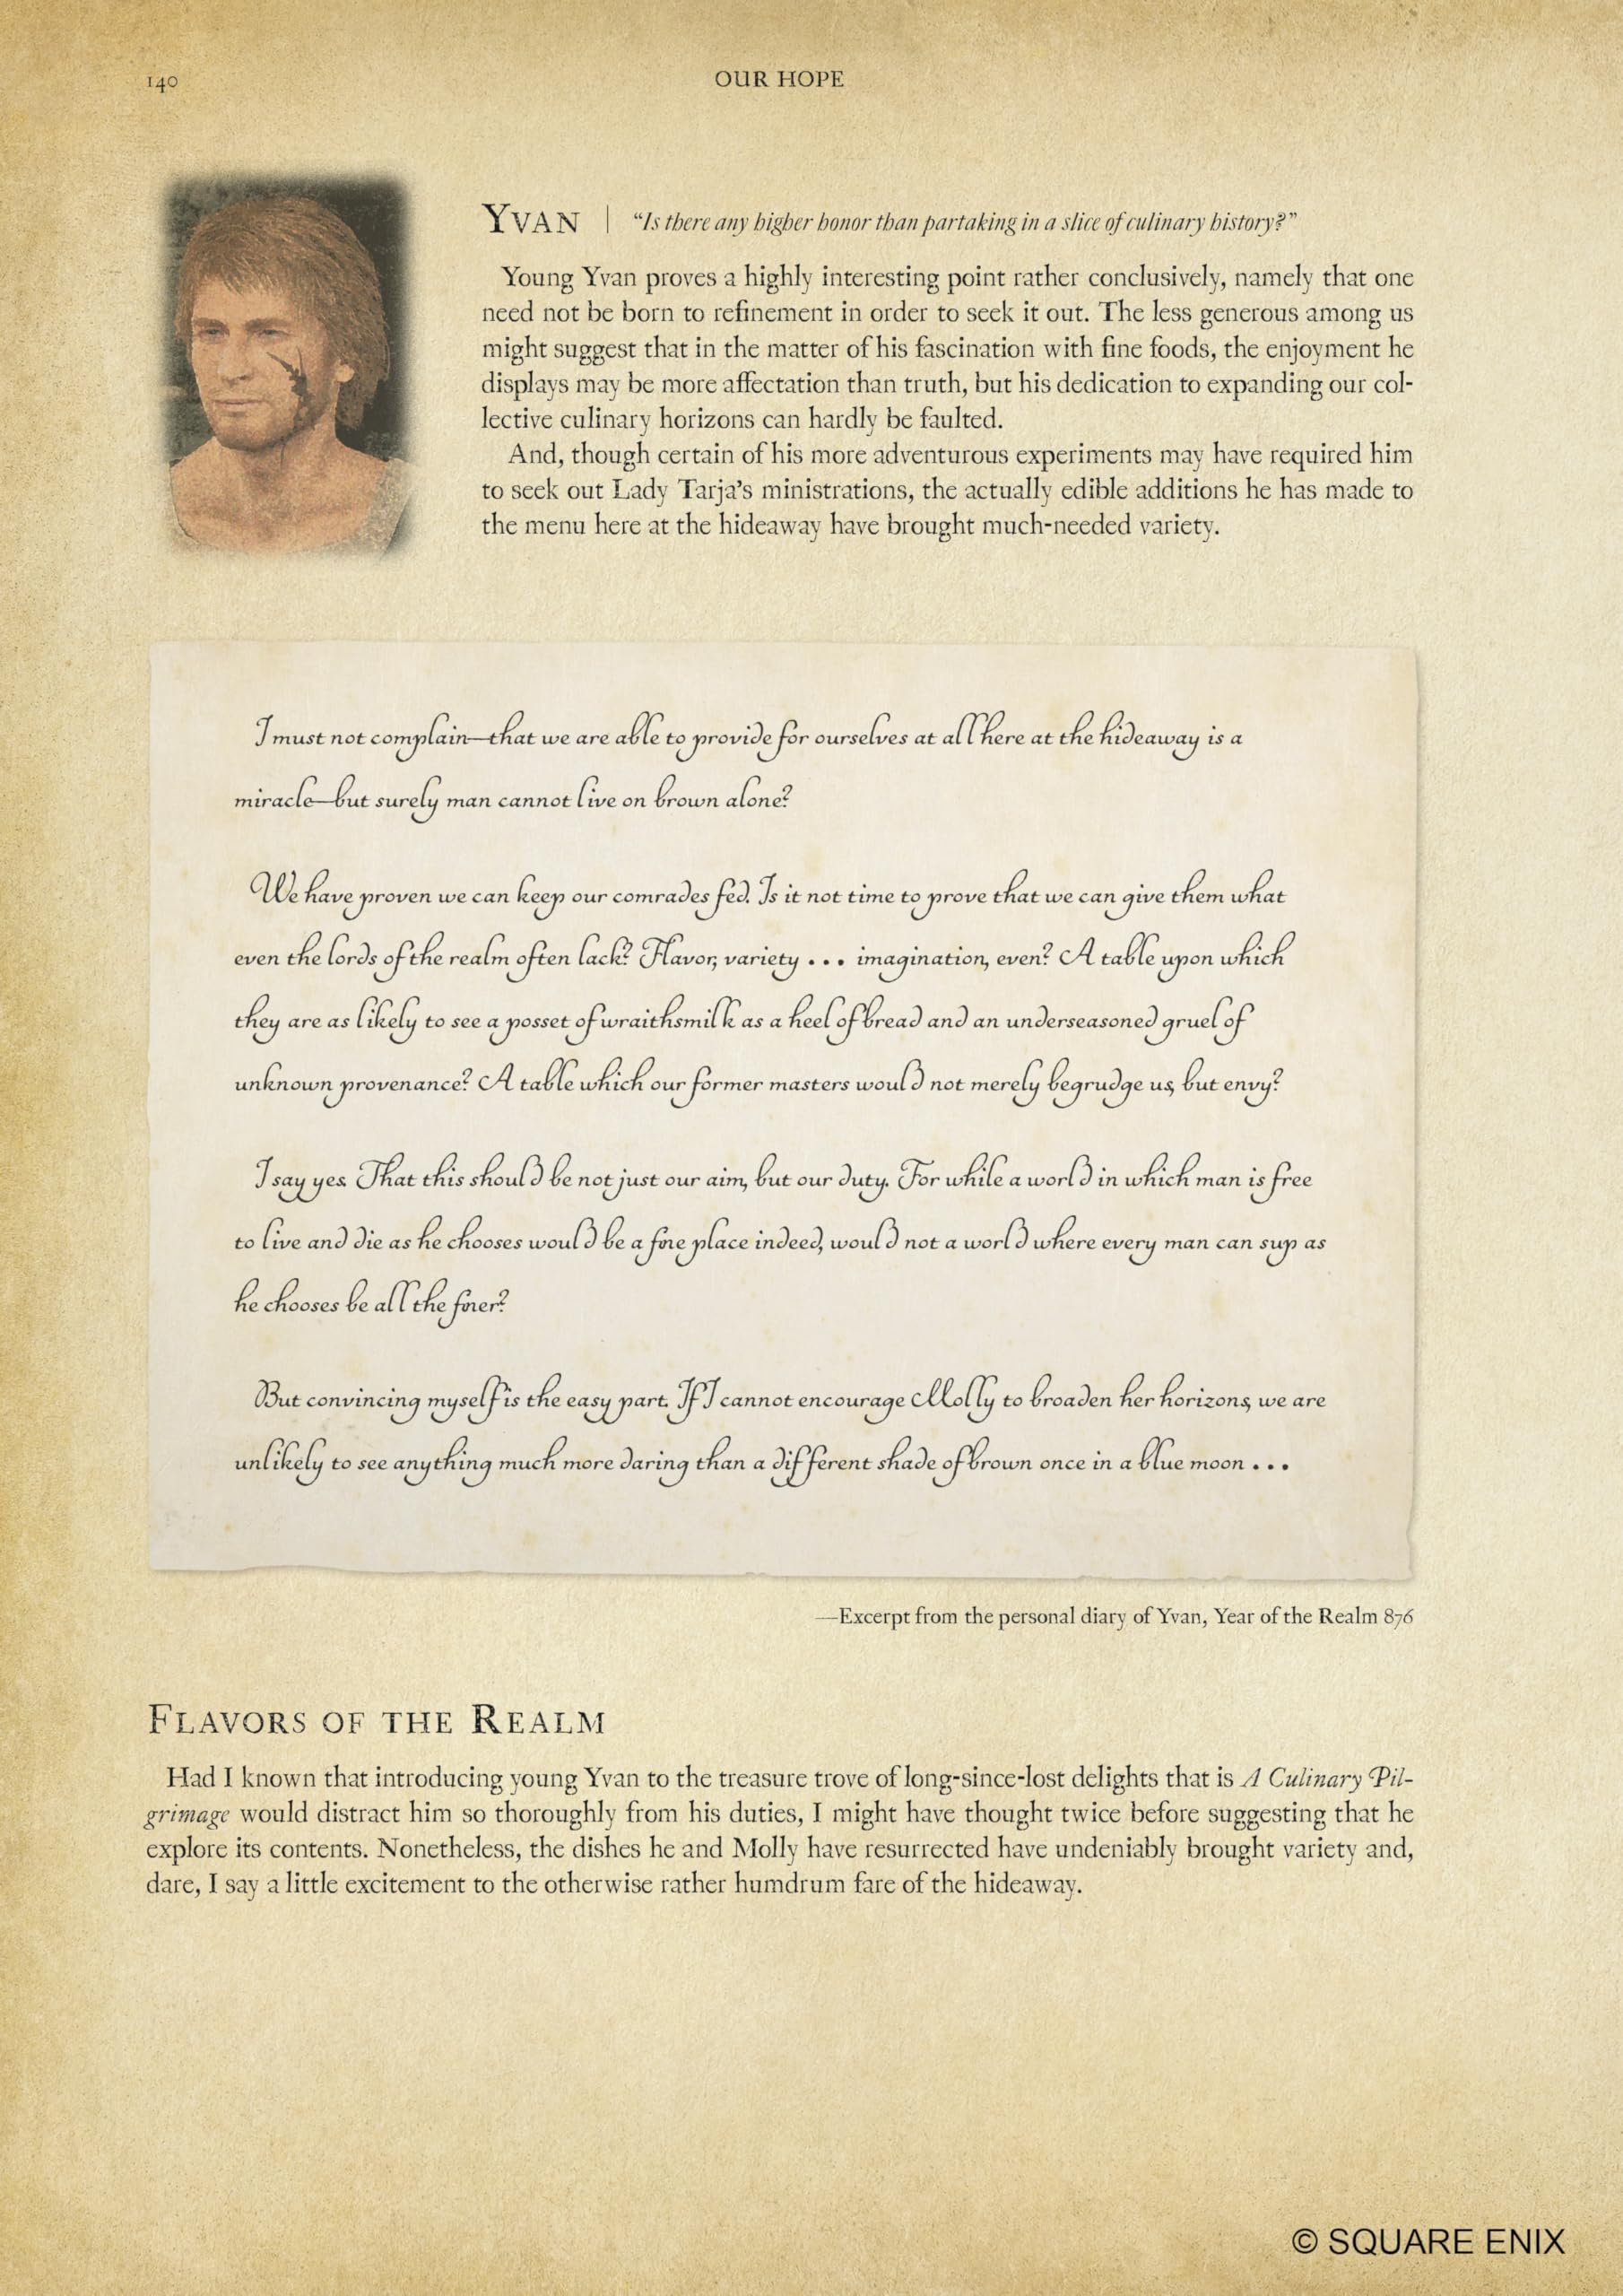 140
OUR HOPE
YVAN | “Is there any higher honor than partaking in a slice of culinary history?”
Young Yvan proves a highly interesting point rather conclusively, namely that one
need not be born to refinement in order to seek it out. The less generous among us
might suggest that in the matter of his fascination with fine foods, the enjoyment he
displays may be more affectation than truth, but his dedication to expanding our col-
lective culinary horizons can hardly be faulted.
And, though certain of his more adventurous experiments may have required him
to seek out Lady Tarja’s ministrations, the actually edible additions he has made to
the menu here at the hideaway have brought much-needed variety.
I must not complain—that we are able to provide for ourselves at all here at the hideaway is a
miracle—but surely man cannot live on brown alone?
We have proven we can keep our comrades fed. Is it not time to prove that we can give them what
even the lords of the realm often lack? Flavor, variety ... imagination, even? A table upon which
they are as likely to see a posset of wraithsmilk as a heel of bread and an underseasoned gruel of
unknown provenance? A table which our former masters would not merely begrudge us, but envy?
I say yes. That this should be not just our aim, but our duty. For while a world in which man is free
to live and die as he chooses would be a fine place indeed, would not a world where every man can sup as
he chooses be all the finer?
But convincing myself is the easy part. If I cannot encourage Molly to broaden her horizons, we are
unlikely to see anything much more daring than a different shade of brown once in a blue moon ...
—Excerpt from the personal diary of Yvan, Year of the Realm 876
FLAVORS OF THE REALM
Had I known that introducing young Yvan to the treasure trove of long-since-lost delights that is A Culinary Pil-
grimage would distract him so thoroughly from his duties, I might have thought twice before suggesting that he
explore its contents. Nonetheless, the dishes he and Molly have resurrected have undeniably brought variety and,
dare, I say a little excitement to the otherwise rather humdrum fare of the hideaway.
© SQUARE ENIX